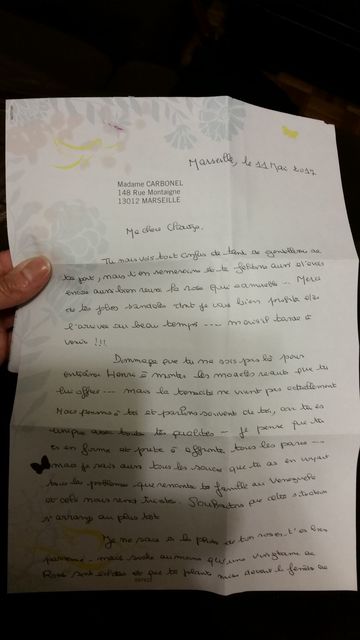 Marseille, le 11 Mai 2017
Madame CARBONEL
148 Rue Montaigne
13012 MARSEILLE
Ma chère
Tu nous vois tout confus de tant de gentillesse de
ta part, mais t'en remercions et te félicitons aussi d'être
aussi bien la rose que --- Merci
de tes jolies sandales dont je vais bien profiter dès
l'arrivée du beau temps ---- mais il tarde à
venir !!!
Dommage que tu ne sois pas là pour
entraîner Henri à monter les modèles réduits que tu
lui offres --- mais la ne vient pas actuellement
Nous pensons à toi et parlons souvent de toi, car tu es
unique avec toutes tes qualités - Je pense que tu
es en forme et prête à affronter tous les
mais je sais aussi tous les soucis que tu as en voyant
tous les problèmes que rencontre ta famille au Venezuela
et cela nous rend tristes. Souhaitons que cette situation
s'arrange au plus tôt
Je ne sais si la photo de tes roses t'est bien
parvenue - mais sache au moins qu'une vingtaine de
Roses sont et que ta plante mise devant la fenêtre de